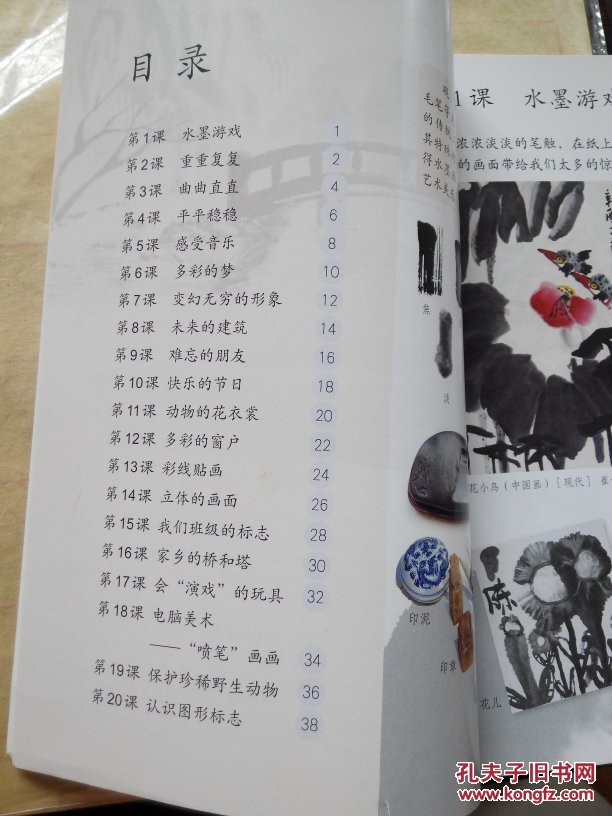 目录
第1课 水墨游戏 1
第2课 重重复复 2
第3课 曲曲直直 4
第4课 平平稳稳 6
第5课 感受音乐 8
第6课 多彩的梦 10
第7课 变幻无穷的形象 12
第8课 未来的建筑 14
第9课 难忘的朋友 16
第10课 快乐的节日 18
第11课 动物的花衣裳 20
第12课 多彩的窗户 22
第13课 彩线贴画 24
第14课 立体的画面 26
第15课 我们班级的标志 28
第16课 家乡的桥和塔 30
第17课 会“演戏”的玩具 32
第18课 电脑美术
——“喷笔”画画 34
第19课 保护珍稀野生动物 36
第20课 认识图形标志 38
毛笔
的传统
其特殊
得水墨
艺术美
焦
淡
印泥
印章
1课 水墨游戏
浓浓淡淡的笔触、在纸上
的画面带给我们太多的惊
花小鸟(中国画)[现代] 崔
陈
花儿
孔夫子旧书网
www.kongfz.com